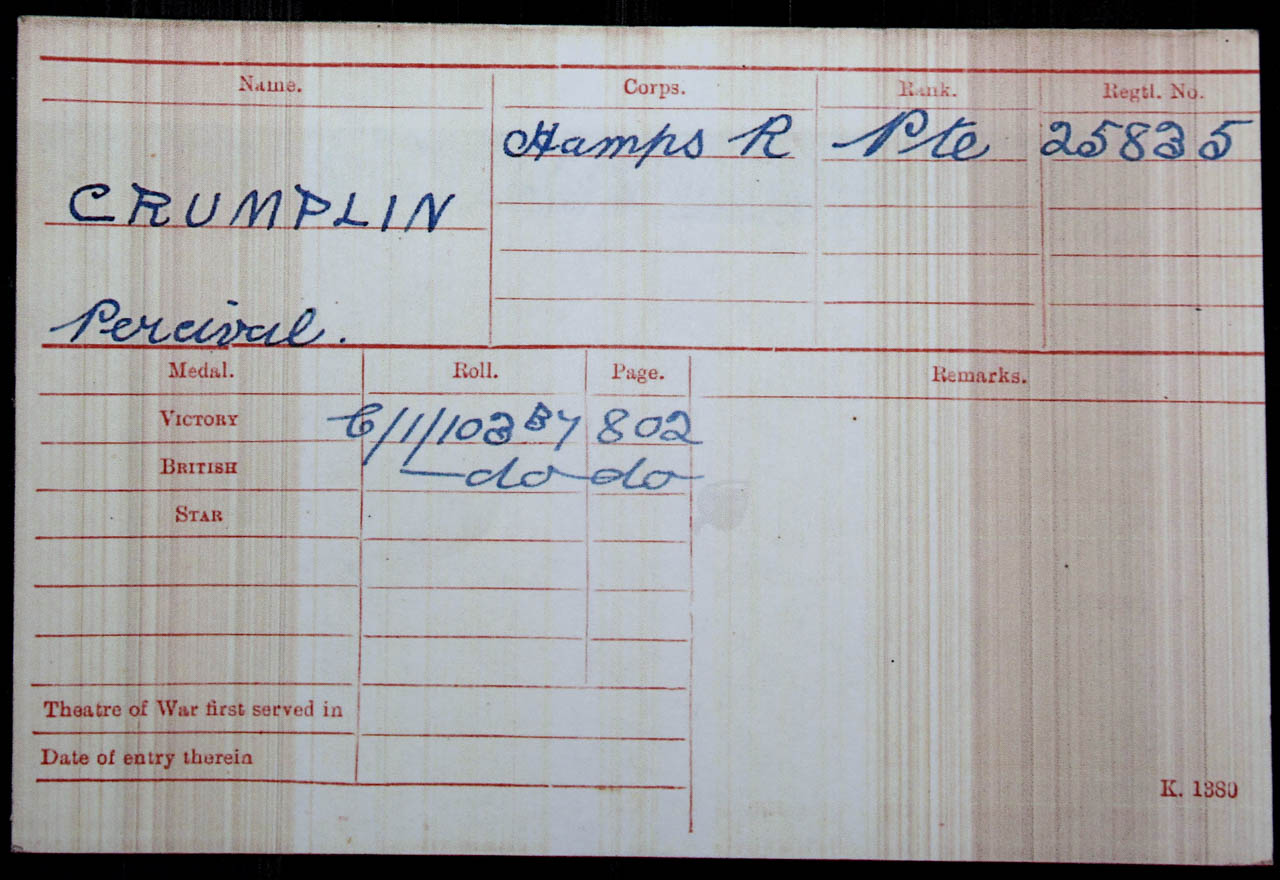 Name. Corps. Rank. Regtl. No.
Hamps R Pte 25835
CRUMPLIN
Percival.
Medal. Roll. Page. Remarks.
VICTORY C/1/103 B7 802
BRITISH —do— do—
STAR
Theatre of War first served in
Date of entry therein
K. 1380